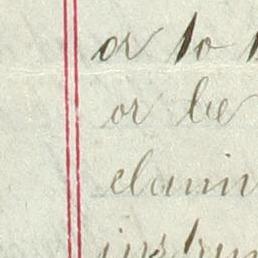 or to
or be
claim
instrum